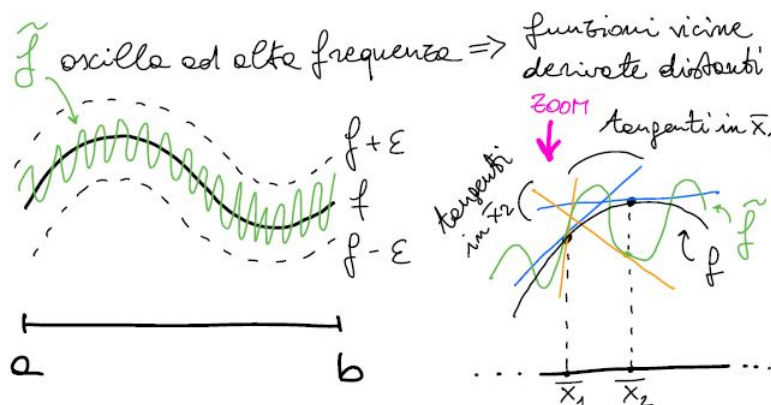 f̃ oscilla ad alta frequenza ⇒ funzioni vicine
derivate distanti
ZOOM
tangenti in x̄₁
tangenti
in x̄₂
f + ε
f
f - ε
f̃
f
a
b
x̄₁
x̄₂